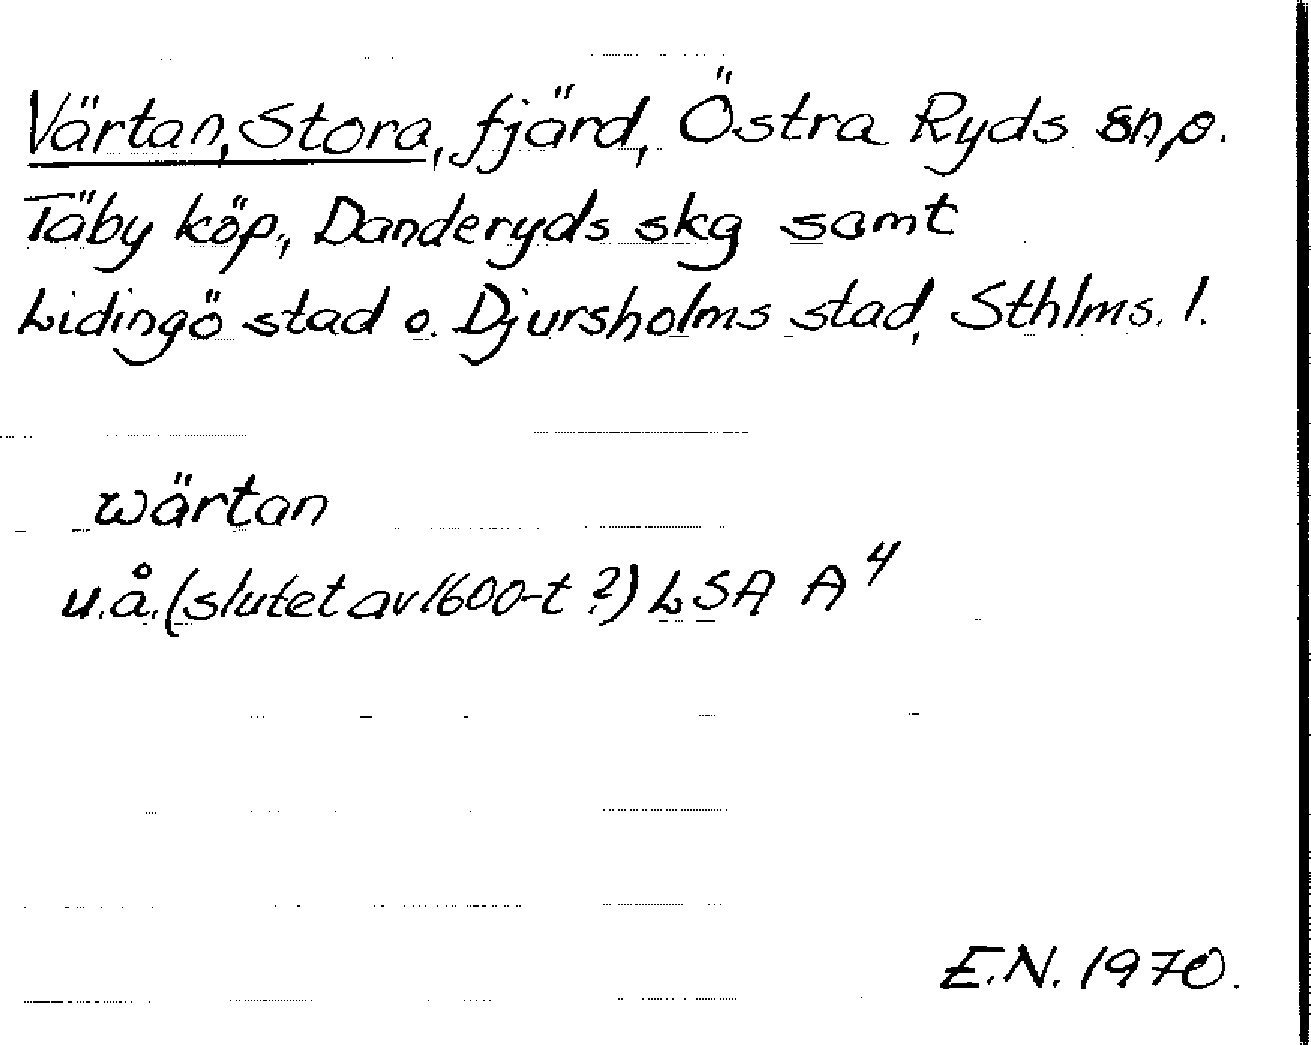 Värtan, Stora, fjärd, Östra Ryds sn, o.
Täby köp., Danderyds skg samt
Lidingö stad o. Djursholms stad, Sthlms. l.
wärtan
u.å. (slutet av 1600-t ?) LSA A⁴
E.N. 1970.